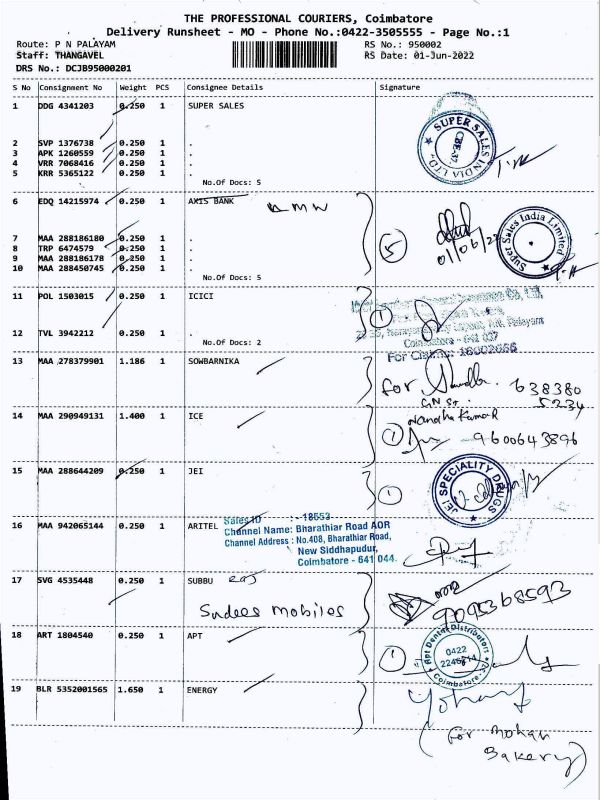 THE PROFESSIONAL COURIERS, Coimbatore
Delivery Runsheet - MO - Phone No.:0422-3505555 - Page No.:1
Route: P N PALAYAM RS No.: 950002
Staff: THANGAVEL RS Date: 01-Jun-2022
DRS No.: DCJB95000201
S No Consignment No Weight PCS Consignee Details Signature
1 DDG 4341203 0.250 1 SUPER SALES
SUPER SALES INDIA LTD
CBE-37.
2 SVP 1376738 0.250 1 .
3 APK 1260559 0.250 1 .
4 VRR 7068416 0.250 1 .
5 KRR 5365122 0.250 1 .
No.Of Docs: 5
6 EDQ 14215974 0.250 1 AXIS BANK
5 01/06/22
Super Sales India Limited
7 MAA 288186180 0.250 1 .
8 TRP 6474579 0.250 1 .
9 MAA 288186178 0.250 1 .
10 MAA 288450745 0.250 1 .
No.Of Docs: 5
11 POL 1503015 0.250 1 ICICI
1
Coimbatore - 641 037
12 TVL 3942212 0.250 1 .
No.Of Docs: 2
13 MAA 278379901 1.186 1 SOWBARNIKA
for 638380
5234
14 MAA 290949131 1.400 1 ICE
Nandha Kumar
1 9600643896
15 MAA 288644209 0.250 1 JEI
1
JEI SPECIALITY DRUGS
16 MAA 942065144 0.250 1 ARITEL
Sales ID :- 18553
Channel Name: Bharathiar Road AOR
Channel Address : No.408, Bharathiar Road,
New Siddhapudur,
Coimbatore - 641 044.
17 SVG 4535448 0.250 1 SUBBU
Sudees Mobiles
9095368593
18 ART 1804540 0.250 1 APT
1
Apt Dental Distributors
0422
Coimbatore-37
19 BLR 5352001565 1.650 1 ENERGY
(for Mohan
Bakery)